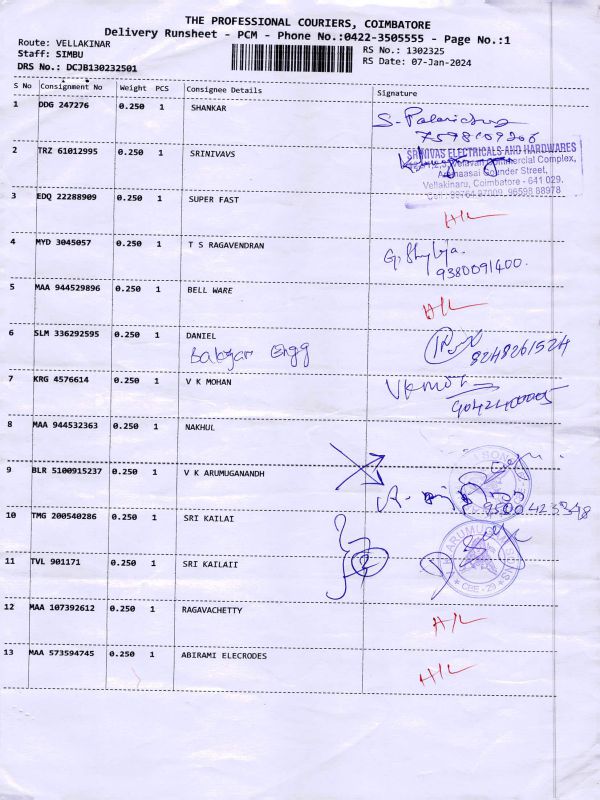 THE PROFESSIONAL COURIERS, COIMBATORE
Delivery Runsheet - PCM - Phone No.:0422-3505555 - Page No.:1
Route: VELLAKINAR
Staff: SIMBU
DRS No.: DCJB130232501
RS No.: 1302325
RS Date: 07-Jan-2024
S No Consignment No Weight PCS Consignee Details Signature
1 DDG 247276 0.250 1 SHANKAR
7598109206
2 TRZ 61012995 0.250 1 SRINIVAVS
SRINIVAS ELECTRICALS AND HARDWARES
Commercial Complex,
Gounder Street,
Vellakinaru, Coimbatore - 641 029.
96598 88978
3 EDQ 22288909 0.250 1 SUPER FAST H/L
4 MYD 3045057 0.250 1 T S RAGAVENDRAN
9380091400.
5 MAA 944529896 0.250 1 BELL WARE H/L
6 SLM 336292595 0.250 1 DANIEL
Engg
8248261524
7 KRG 4576614 0.250 1 V K MOHAN
9042400005
8 MAA 944532363 0.250 1 NAKHUL
9 BLR 5100915237 0.250 1 V K ARUMUGANANDH
9500423348
10 TMG 200540286 0.250 1 SRI KAILAI
11 TVL 901171 0.250 1 SRI KAILAII
CBE - 29
12 MAA 107392612 0.250 1 RAGAVACHETTY H/L
13 MAA 573594745 0.250 1 ABIRAMI ELECRODES H/L